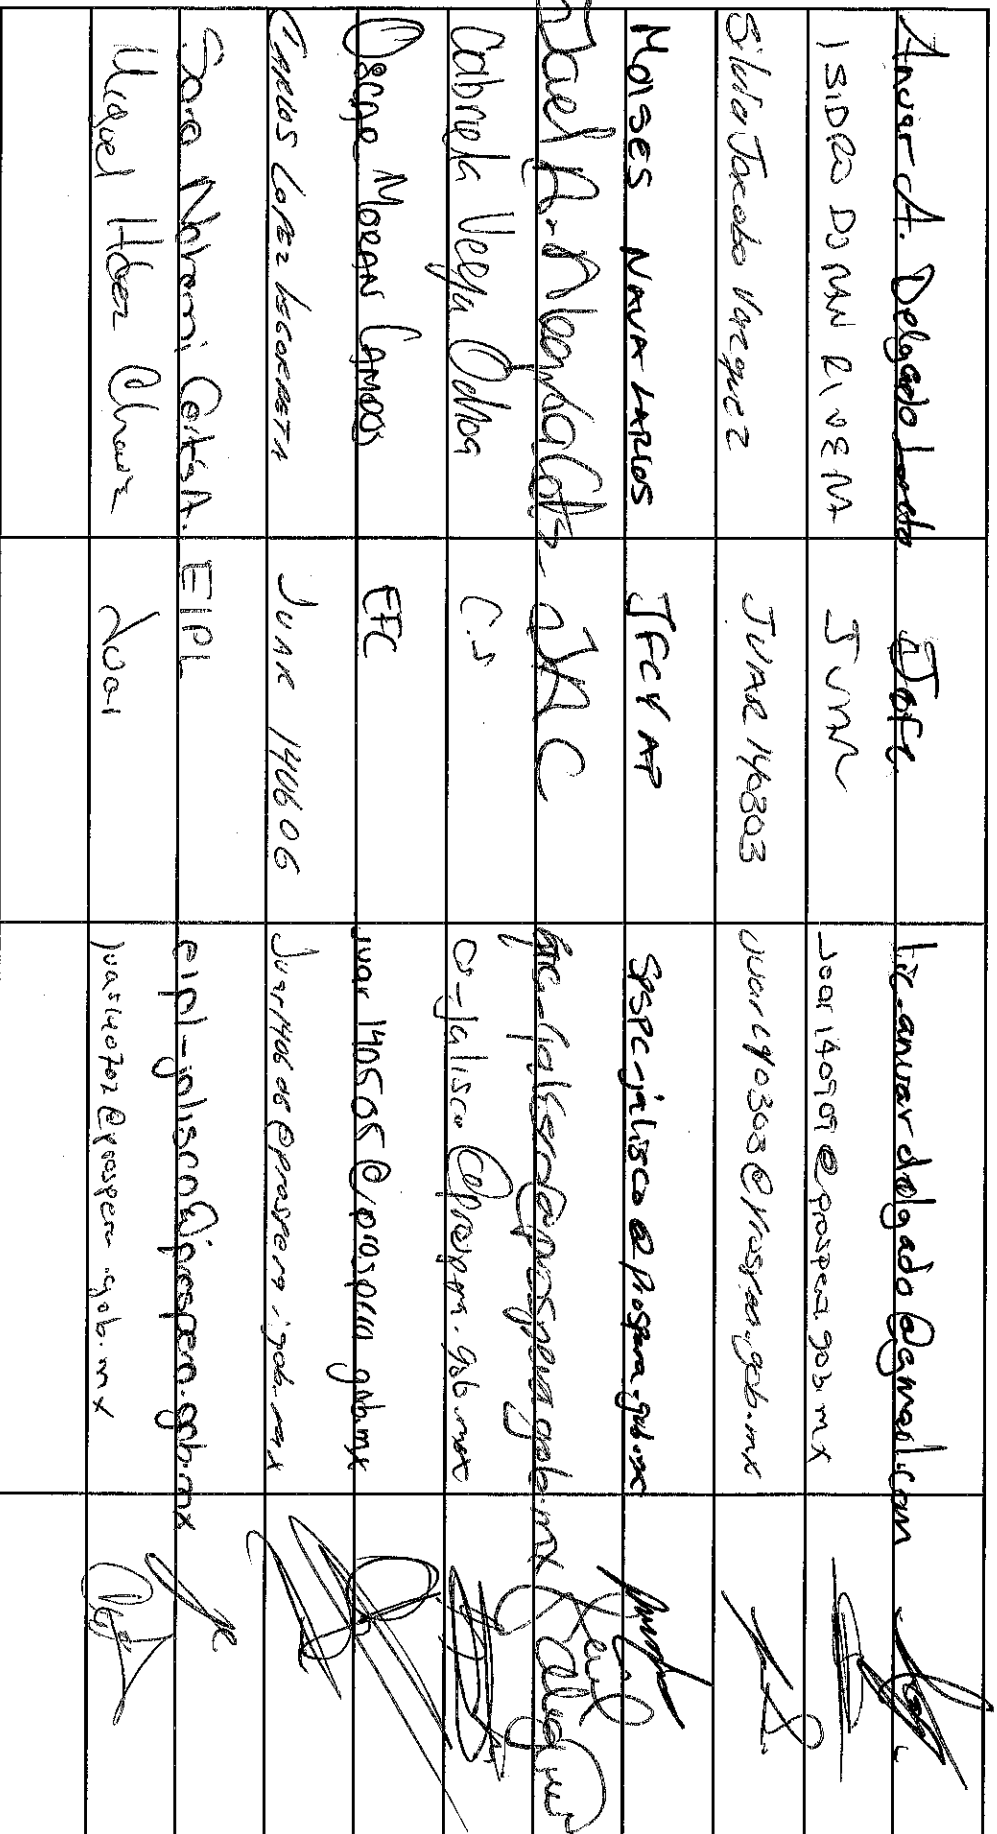 Anuar A. Delgado Loreto Jofe. lic.anuardelgado@gmail.com
ISIDRO DURAN RIVERA JUAR Juar140909@prospera.gob.mx
Silvia Jacobo Vazquez JUAR 140303 juar140303@prospera.gob.mx
MOISES NAVA LARIOS JFCYAP spspc-jalisco@prospera.gob.mx
Jael A. JAC
Gabriela Vega C.S cs-jalisco@prospera.gob.mx
Oscar MORAN CAMPOS EFC juar140505@prospera.gob.mx
CARLOS LOPEZ LEGORRETA JUAR 140606 Juar140606@prospera.gob.mx
Sara Nohemi Cortés A. EIPL eipl-jalisco@prospera.gob.mx
Miguel Hdez Chavez Juar juar140702@prospera.gob.mx